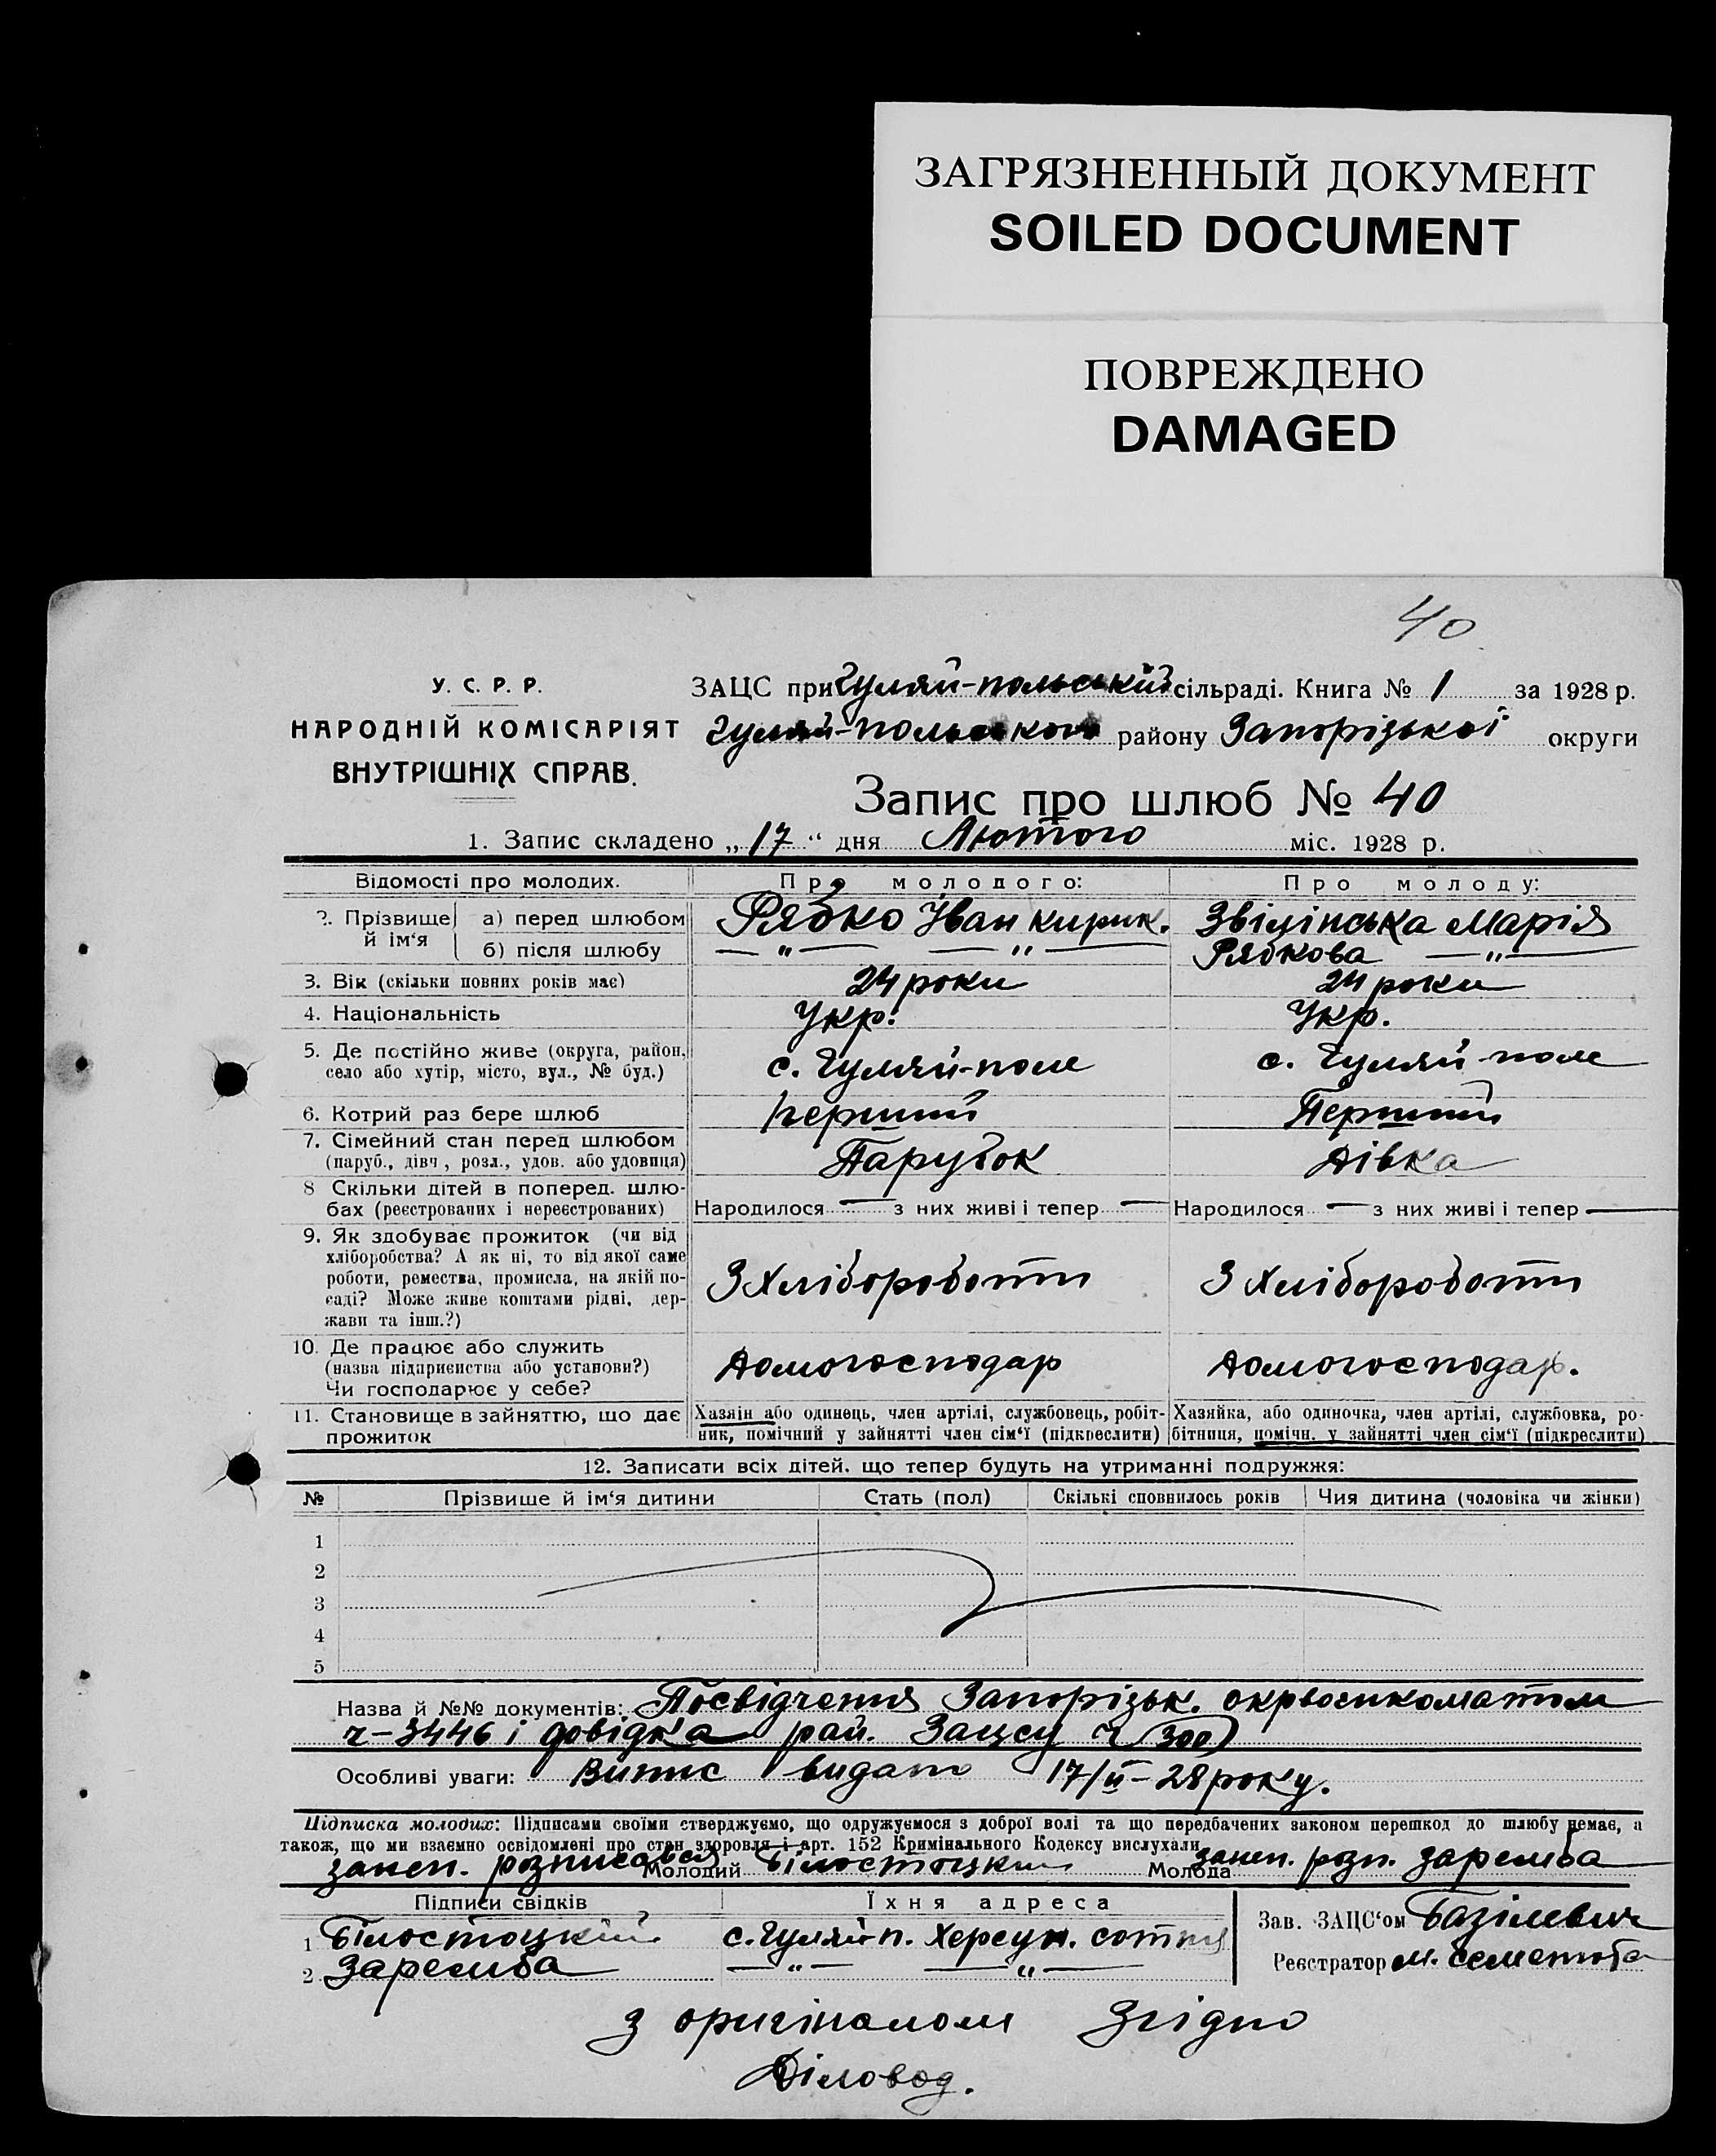 ЗАГРЯЗНЕННЫЙ ДОКУМЕНТ
SOILED DOCUMENT
ПОВРЕЖДЕНО
DAMAGED
40
У. С. Р. Р.
НАРОДНІЙ КОМІСАРІЯТ
ВНУТРІШНІХ СПРАВ.
ЗАЦС при Гуляй-польській сільраді. Книга № 1 за 1928 р.
Гуляй-польського району Запорізької округи
Запис про шлюб № 40
1. Запис складено „17“ дня Лютого міс. 1928 р.
Відомості про молодих. Про молодого: Про молоду:
2. Прізвище й ім‘я а) перед шлюбом Рябко Іван Кирик. Звілінська Марія
б) після шлюбу — „ — — „ — Рябкова — „ —
3. Вік (скільки повних років має) 24 роки 24 роки
4. Національність Укр. Укр.
5. Де постійно живе (округа, район, село або хутір, місто, вул., № буд.) с. Гуляй-поле с. Гуляй-поле
6. Котрий раз бере шлюб перший Перший
7. Сімейний стан перед шлюбом (паруб., дівч., розл., удов. або удовиця) Парубок Дівка
8 Скільки дітей в поперед. шлюбах (реєстрованих і нереєстрованих) Народилося — з них живі і тепер — Народилося — з них живі і тепер —
9. Як здобуває прожиток (чи від хліборобства? А як ні, то від якої саме роботи, ремества, промисла, на якій посаді? Може живе коштами рідні, держави та інш.?) З Хлібороботи З Хлібороботи
10. Де працює або служить (назва підприємства або установи?) Чи господарює у себе? Домогосподар Домогосподар.
11. Становище в зайняттю, що дає прожиток Хазяїн або одинець, член артілі, службовець, робітник, помічний у зайнятті член сім‘ї (підкреслити) Хазяйка, або одиночка, член артілі, службовка, робітниця, помічн. у зайнятті член сім‘ї (підкреслити)
12. Записати всіх дітей, що тепер будуть на утриманні подружжя:
№ Прізвище й ім‘я дитини Стать (пол) Скількі сповнилось років Чия дитина (чоловіка чи жінки)
1
2
3
4
5
Назва й №№ документів: Посвідчення Запорізьк. окрвоєнкоматом
ч-3446 і довідка рай. Зацсу ч 300
Особливі уваги: Випис видано 17/II-28 року.
Підписка молодих: Підписами своїми стверджуємо, що одружуємося з доброї волі та що передбачених законом перешкод до шлюбу немає, а
також, що ми взаємно освідомлені про стан здоровля і арт. 152 Кримінального Кодексу вислухали
занеп. розписався Молодий Білостоцкий Молода занеп. розп. Заремба
Підписи свідків Їхня адреса
1 Білостоцкий с. Гуляй-п. Херсун. сотня
2 Заремба — „ — — „ —
Зав. ЗАЦС‘ом Базілевич
Реєстратор М. Семенюта
З оригіналом Згідно
Діловод.